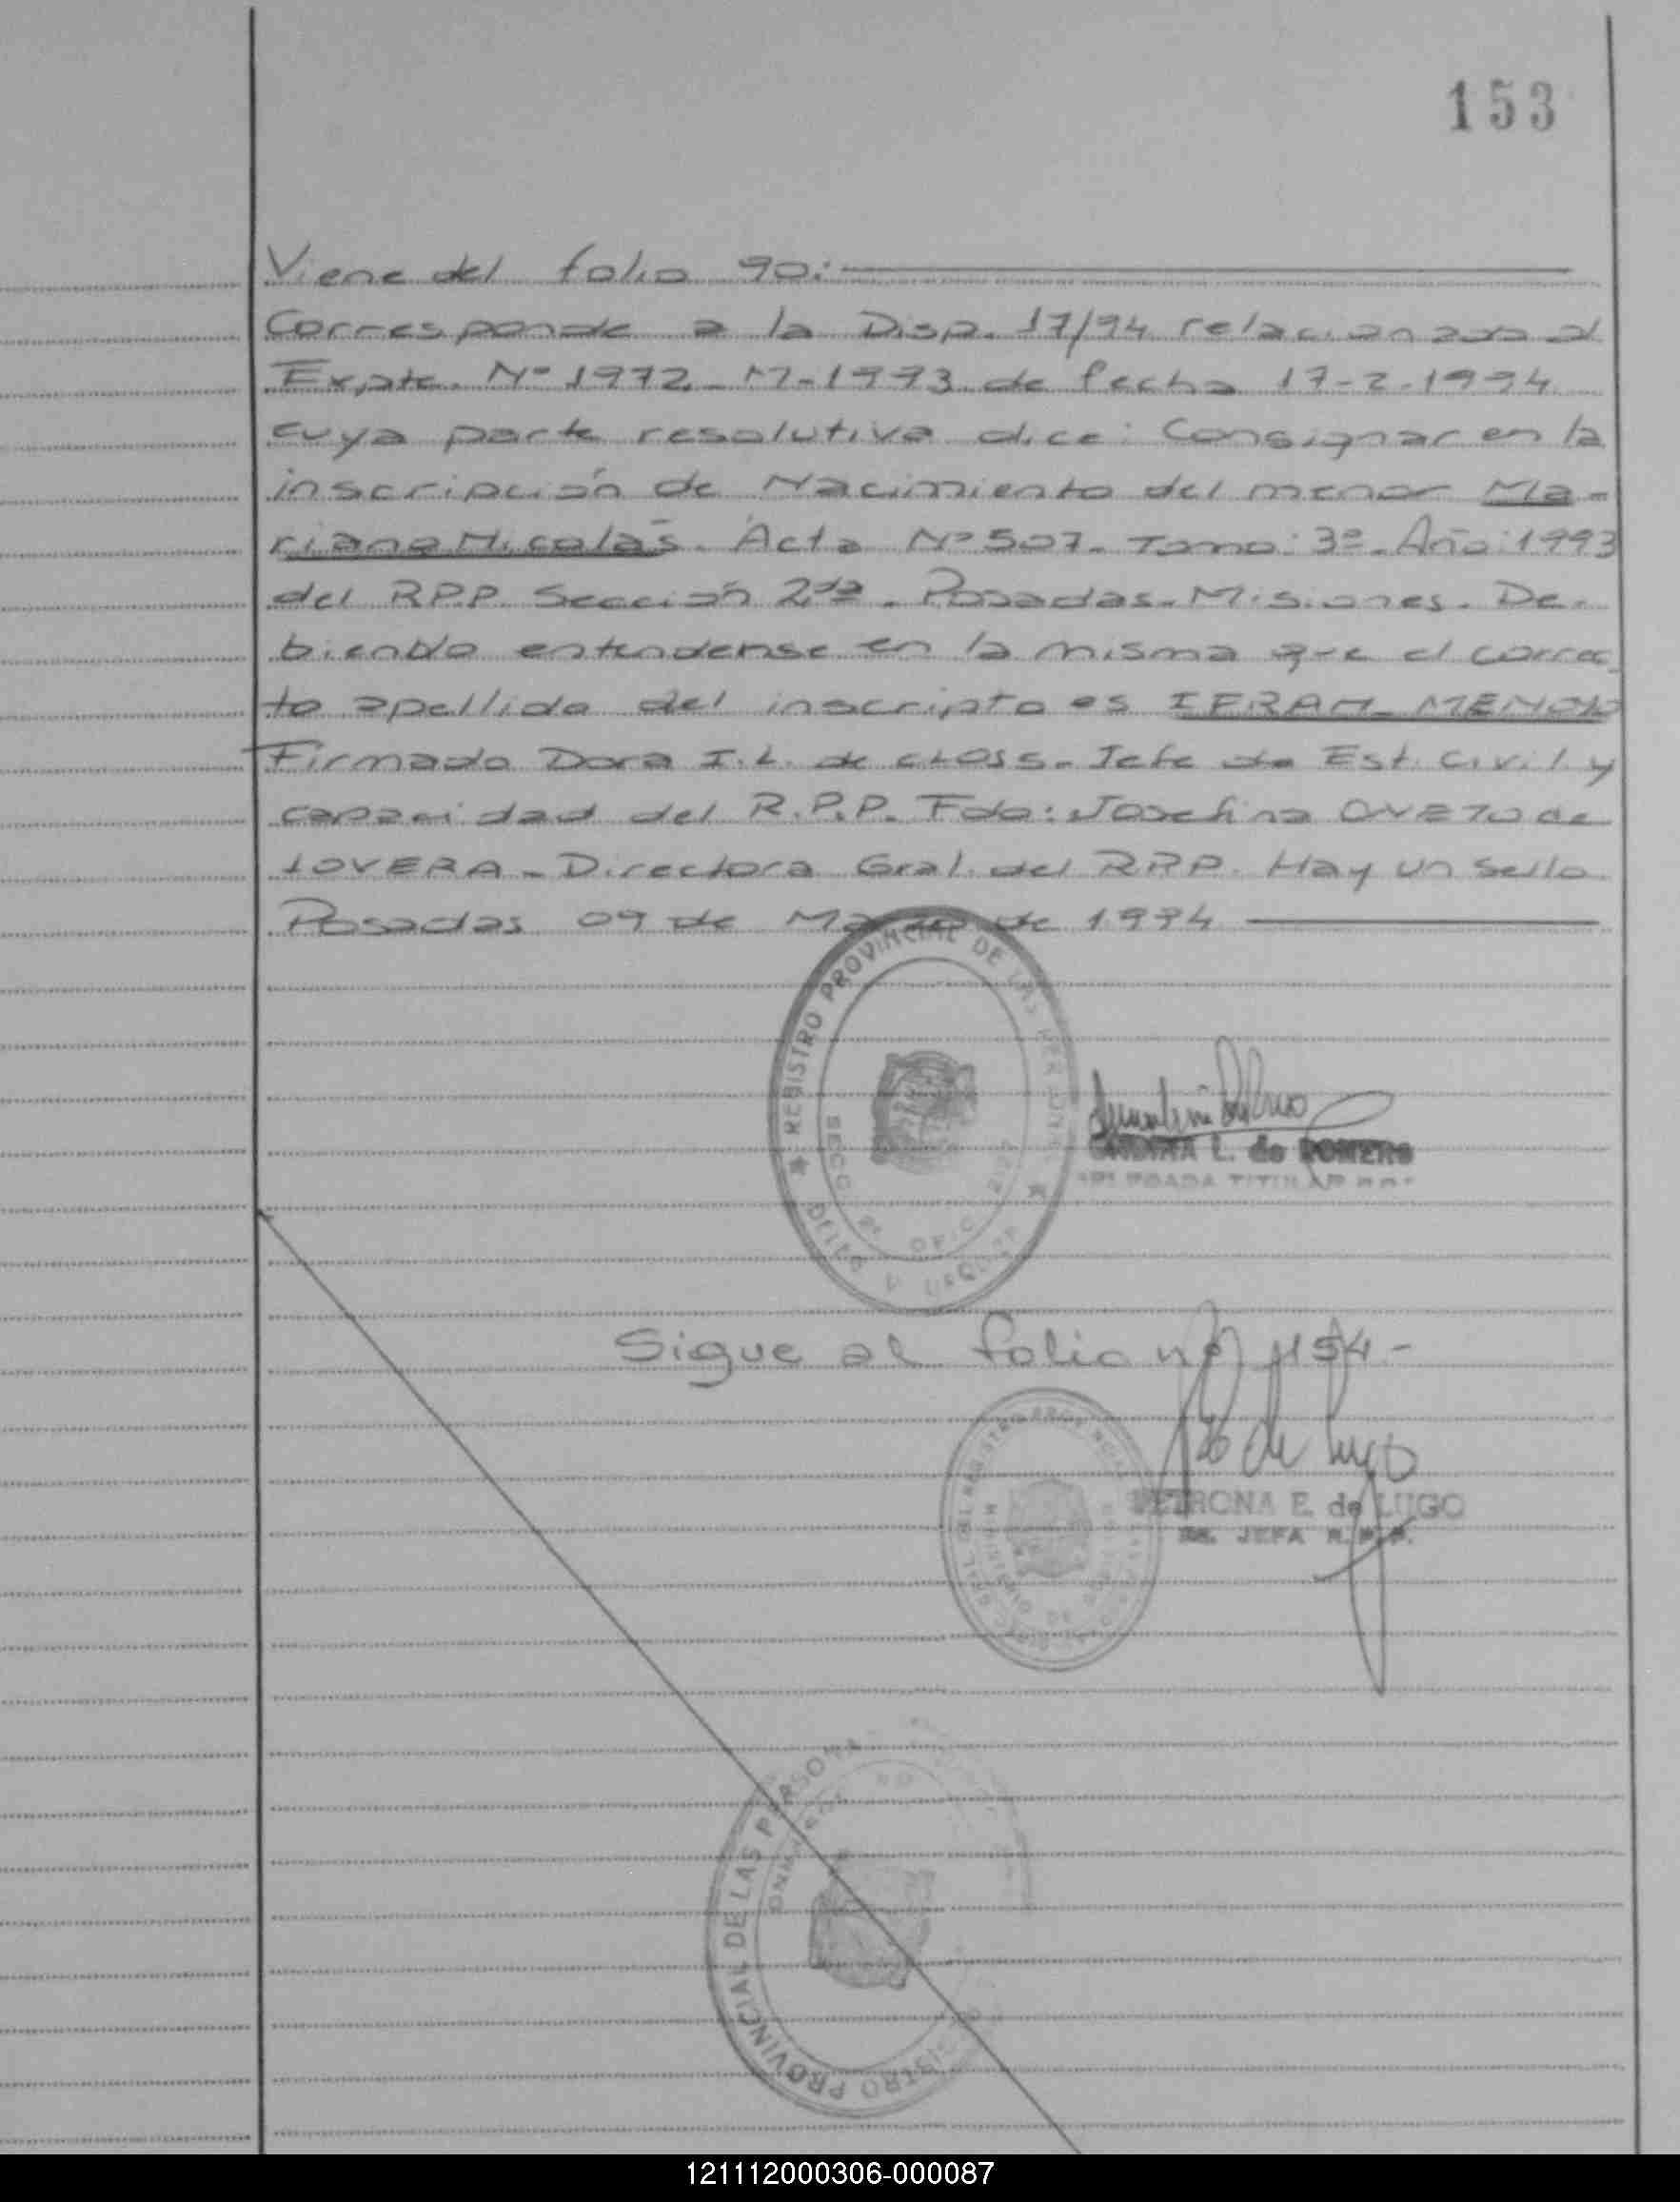 153
Viene del folio 90:
Corresponde a la Disp. 17/94 relacionada al
Expte. Nº 1972-M-1993 de fecha 17-2-1994
cuya parte resolutiva dice: Consignar en la
inscripción de Nacimiento del menor Ma-
riano Nicolás. Acta Nº 507. Tomo: 3º. Año: 1993
del R.P.P. Sección 2da. Posadas-Misiones. De-
biendo entenderse en la misma que el correc
to apellido del inscripto es IFRAN-MENDO
Firmado Dora I.L. de CLOSS- Jefe de Est. Civil y
capacidad del R.P.P. Fdo: Josefina OVEJO de
LOVERA- Directora Gral. del RPP. Hay un sello
Posadas 09 de Marzo de 1994
REGISTRO PROVINCIAL DE LAS
SECC. 2º OFIC.
L. de ROMERO
TITULAR
Sigue al folio nº 154-
PETRONA E. de LUGO
JEFA R.P.P.
REGISTRO PROVINCIAL DE LAS PERSONA
121112000306-000087